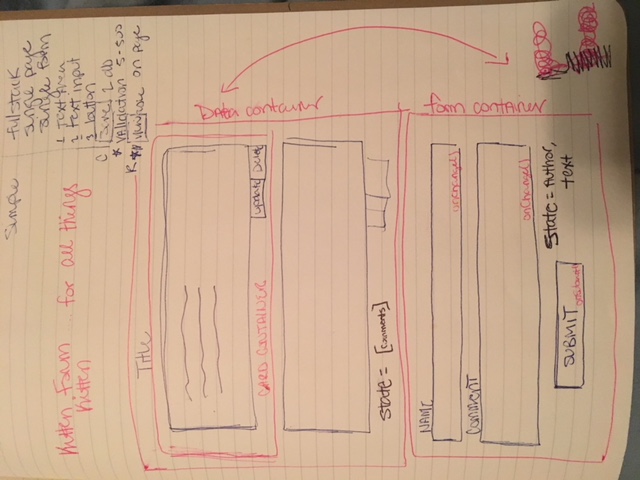 Simple
fullstack
single page
single form
1 Text Area
2 Text input
3 button
C Save 2 db
* VAlidation 5-500
R ** on page
Kitten Foam ... for all things
Kitten
Title
CARD CONTAINER
update
Delete
Data container
state = [comments]
NAME
onChange()
Comment
onChange()
form container
SUBMIT
onSubmit()
State = Author,
text